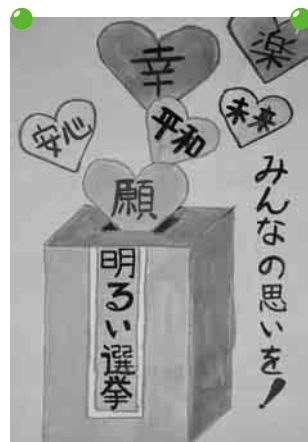 幸
楽
安心
平和
未来
願
明るい選挙
みんなの思いを!